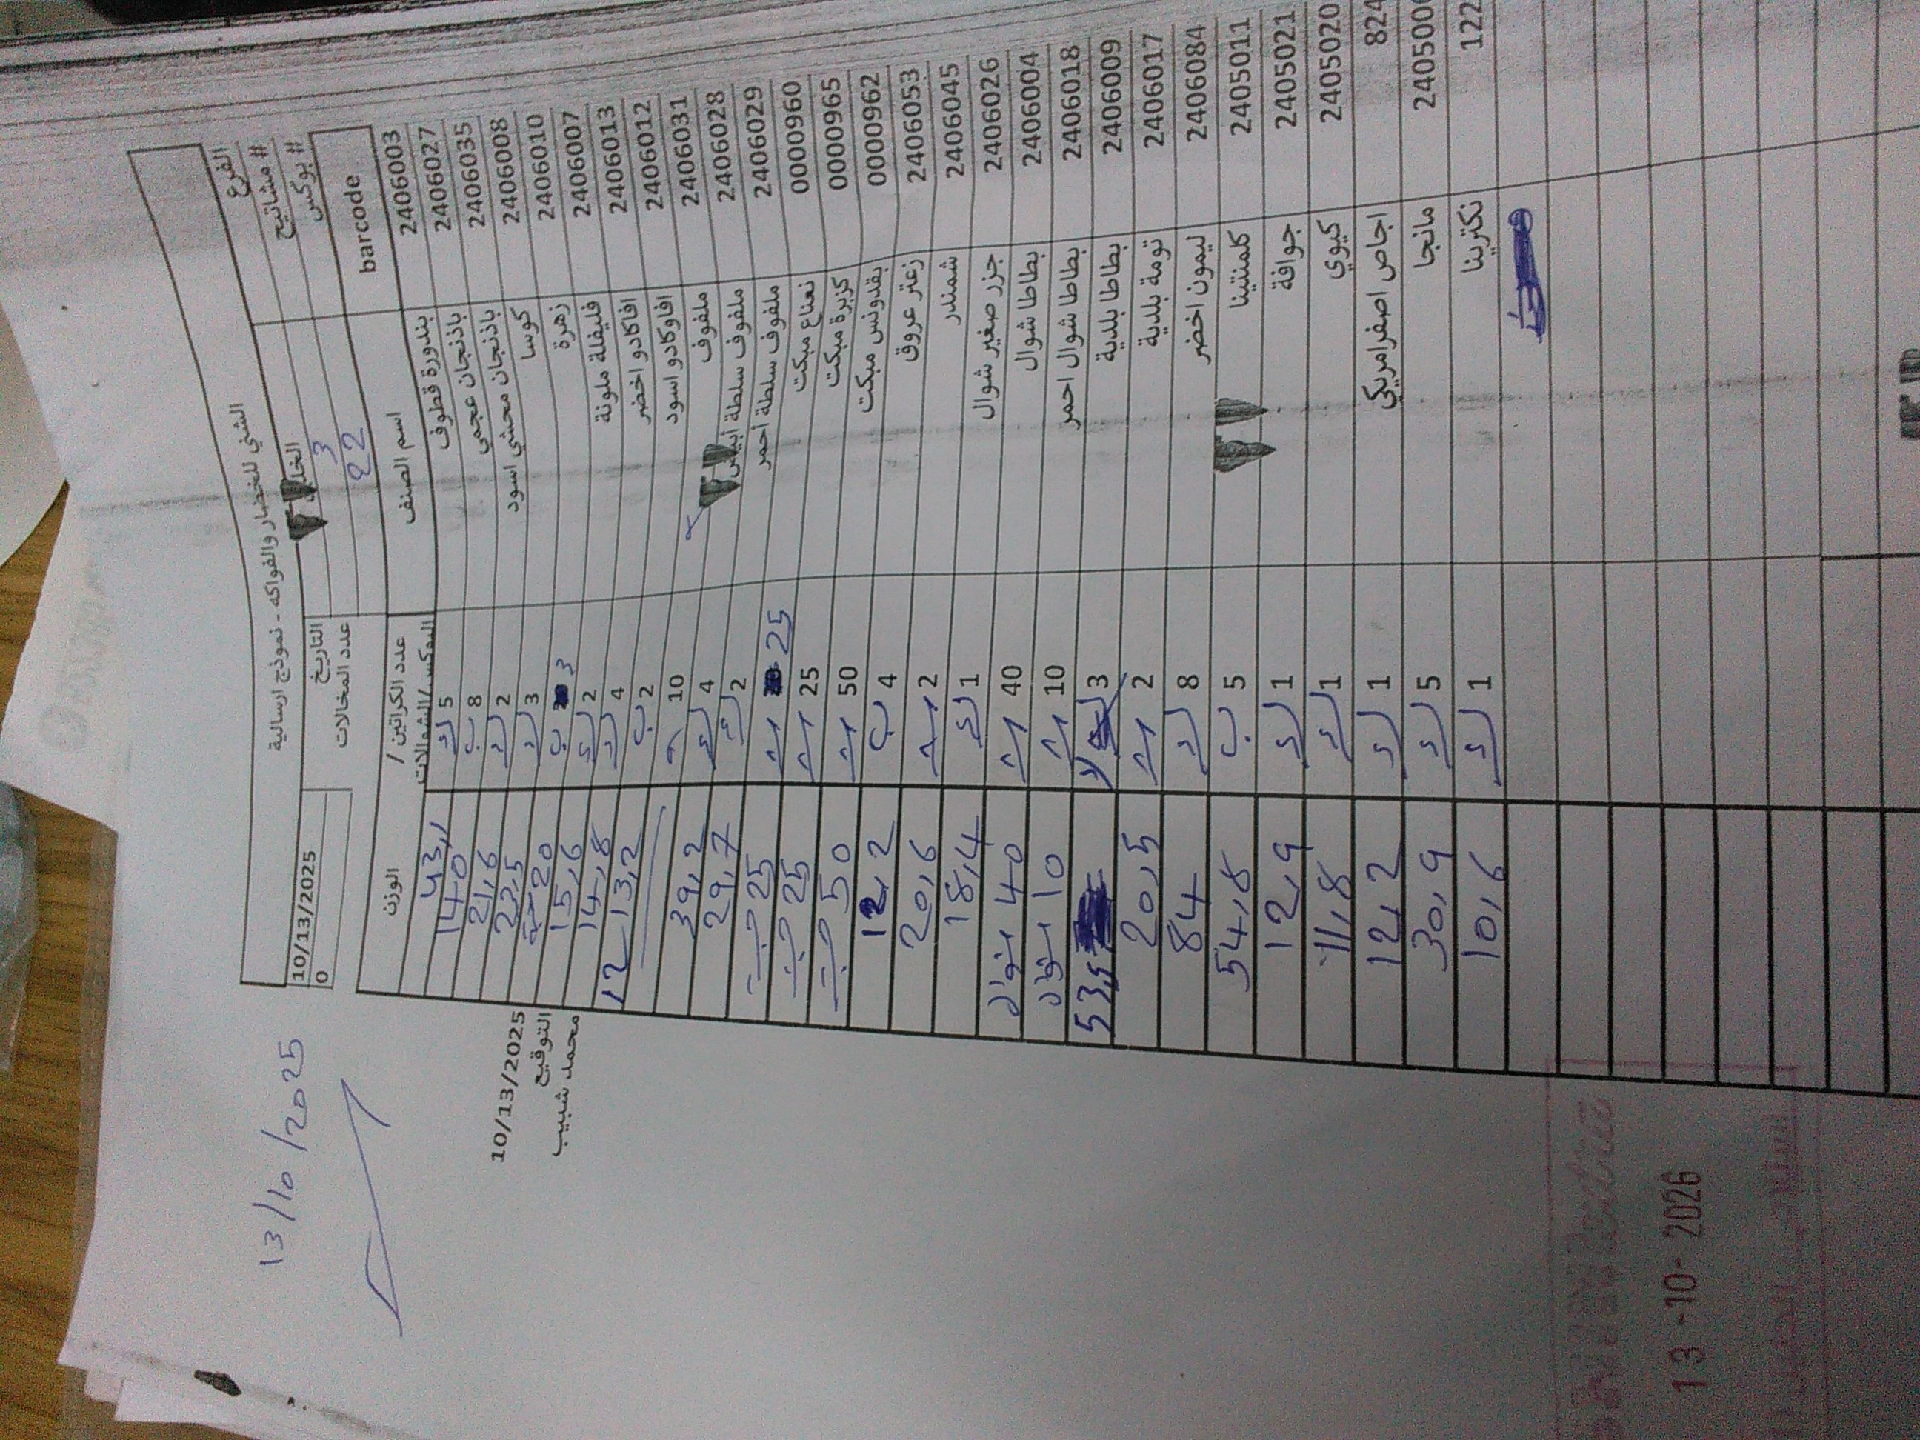 13/10/2025
الشني للخضار والفواكه - نموذج ارسالية
الفرع
التاريخ 10/13/2025
# مشاتيح 3 عدد المخالات 0
# بوكس 22
barcode اسم الصنف عدد الكراتين / البوكس/الشوالات الوزن
2406003 بندورة قطوف 5 43,1
2406027 باذنجان عجمي 8 140
2406035 باذنجان محشي اسود 2 21,6
2406008 كوسا 3 22,5
2406010 زهرة 3 20
2406007 فليفلة ملونة 2 15,6
2406013 افاكادو اخضر 4 14,8
2406012 افاوكادو اسود 2 13,2 12
2406031 ملفوف 10
2406028 ملفوف سلطة ابيض 4 39,2
2406029 ملفوف سلطة احمر 2 29,7
0000960 نعناع مبكت 25 25
0000965 كزبرة مبكت 25 25
0000962 بقدونس مبكت 50 50
2406053 زعتر عروق 4 12,2
2406045 شمندر 2 20,6
2406026 جزر صغير شوال 1 18,4
2406004 بطاطا شوال 40 40 شوال
2406018 بطاطا شوال احمر 10 10 شوال
2406009 بطاطا بلدية 3 53,5
2406017 تومة بلدية 2 20,5
2406084 ليمون اخضر 8 84
2405011 كلمنتينا 5 54,8
2405021 جوافة 1 12,9
2405020 كيوي 1 11,8
824 اجاص اصفرامريكي 1 12,2
240500 مانجا 5 30,9
122 نكترينا 1 10,6
10/13/2025
التوقيع
محمد شبيب
13-10-2026